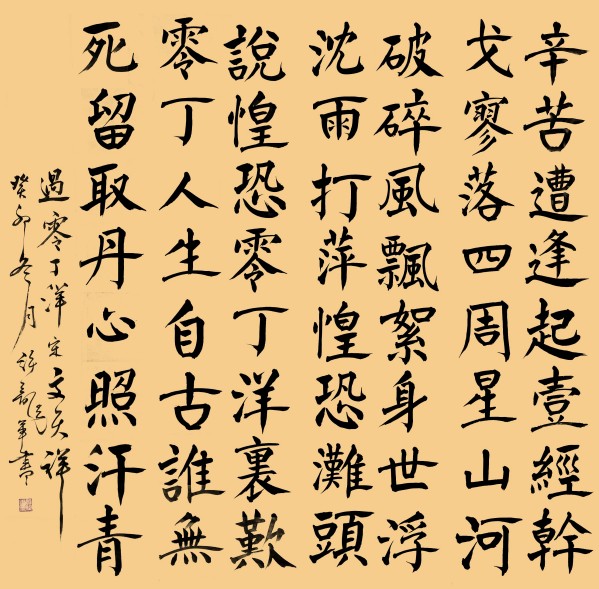 辛苦遭逢起壹經幹
戈寥落四周星山河
破碎風飄絮身世浮
沈雨打萍惶恐灘頭
說惶恐零丁洋裏歎
零丁人生自古誰無
死留取丹心照汗青
過零丁洋 宋 文天祥
癸卯冬月 許 軍書